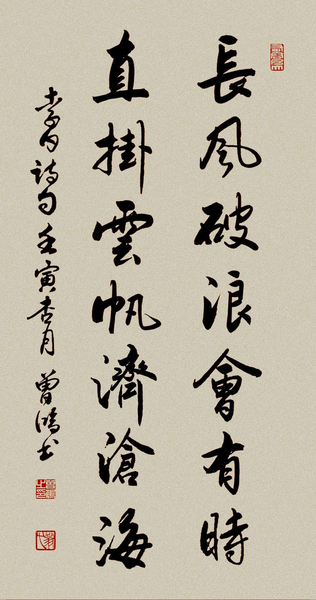 長風破浪會有時
直掛雲帆濟滄海
李白詩句壬寅杏月曾鴻书